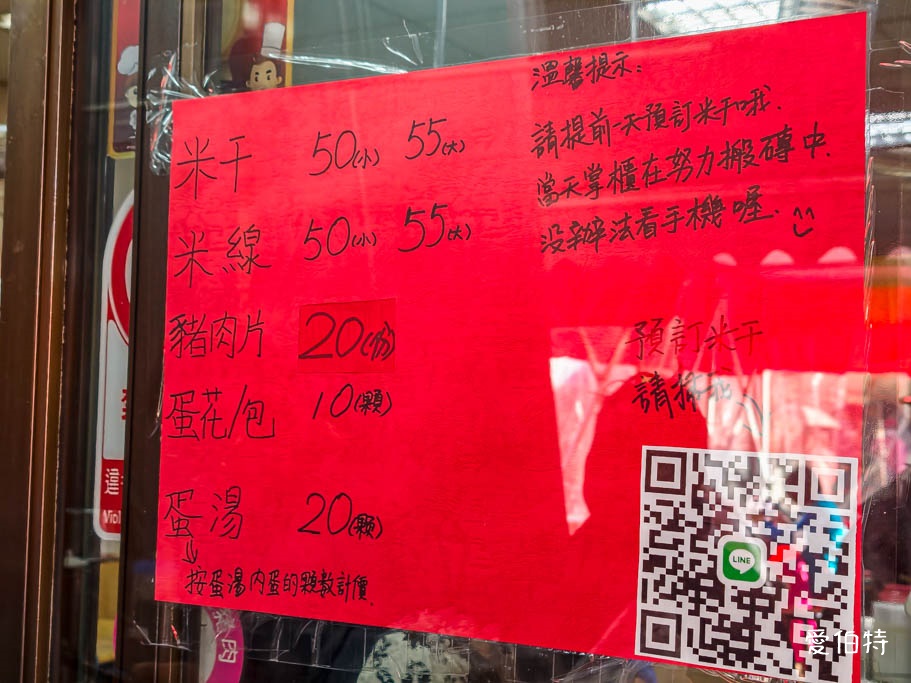 米干 50(小) 55(大)
米線 50(小) 55(大)
豬肉片 20(份)
蛋花/包 10(顆)
蛋湯 20(顆)
按蛋湯內蛋的顆數計價
溫馨提示:
請提前一天預訂米干哦.
當天掌櫃在努力搬磚中.
沒辦法看手機喔.
預訂米干
請掃我
LINE
這
Viol
肉
愛伯特